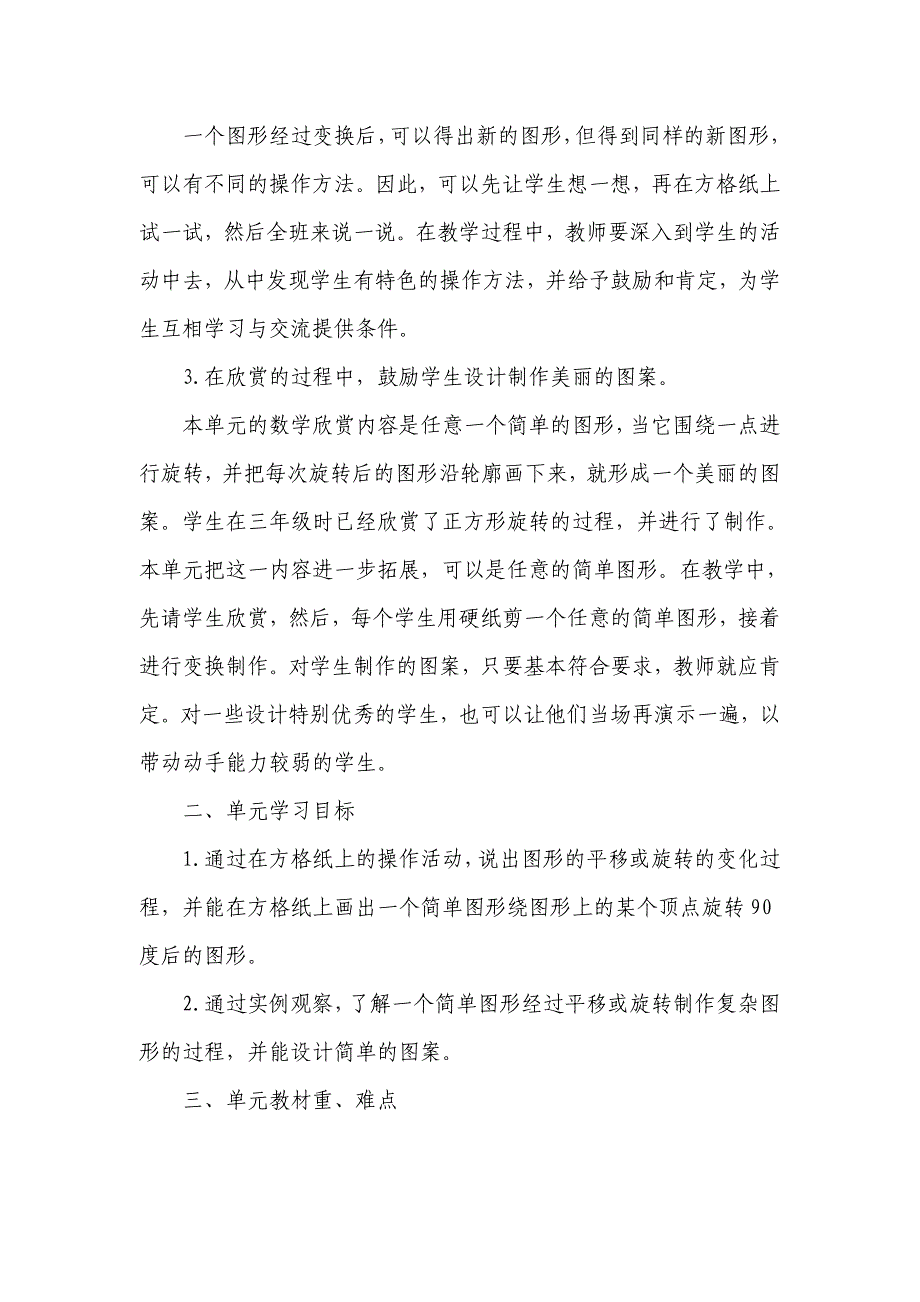 一个图形经过变换后，可以得出新的图形，但得到同样的新图形，
可以有不同的操作方法。因此，可以先让学生想一想，再在方格纸上
试一试，然后全班来说一说。在教学过程中，教师要深入到学生的活
动中去，从中发现学生有特色的操作方法，并给予鼓励和肯定，为学
生互相学习与交流提供条件。
3.在欣赏的过程中，鼓励学生设计制作美丽的图案。
本单元的数学欣赏内容是任意一个简单的图形，当它围绕一点进
行旋转，并把每次旋转后的图形沿轮廓画下来，就形成一个美丽的图
案。学生在三年级时已经欣赏了正方形旋转的过程，并进行了制作。
本单元把这一内容进一步拓展，可以是任意的简单图形。在教学中，
先请学生欣赏，然后，每个学生用硬纸剪一个任意的简单图形，接着
进行变换制作。对学生制作的图案，只要基本符合要求，教师就应肯
定。对一些设计特别优秀的学生，也可以让他们当场再演示一遍，以
带动动手能力较弱的学生。
二、单元学习目标
1.通过在方格纸上的操作活动，说出图形的平移或旋转的变化过
程，并能在方格纸上画出一个简单图形绕图形上的某个顶点旋转90
度后的图形。
2.通过实例观察，了解一个简单图形经过平移或旋转制作复杂图
形的过程，并能设计简单的图案。
三、单元教材重、难点